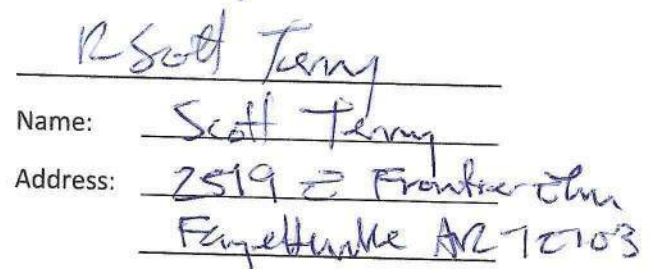 R Scott Terry
Name: Scott Terry
Address: 2519 E Frontier Elm
Fayetteville AR 72703